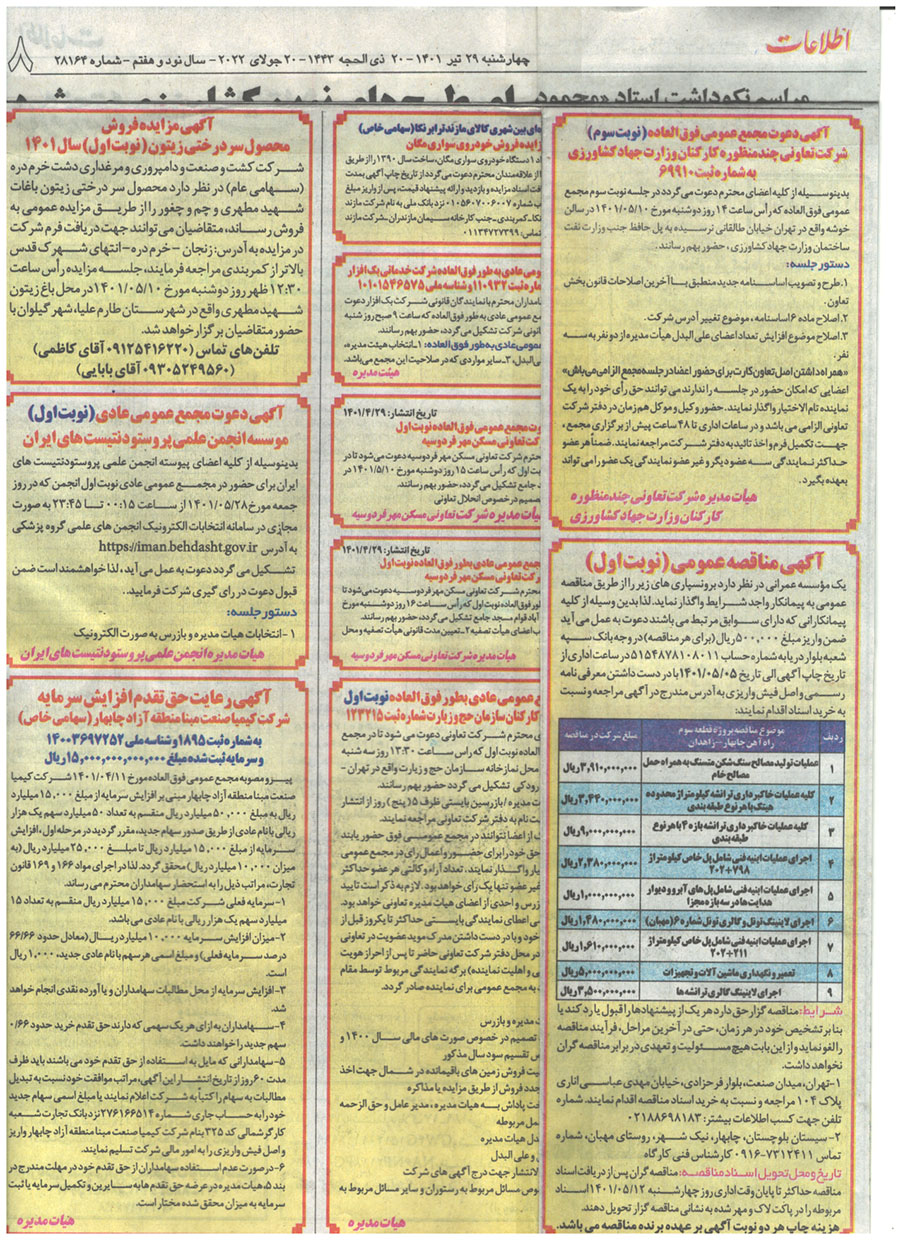 اطلاعات
چهارشنبه ۲۹ تیر ۱۴۰۱ - ۲۰ ذی الحجه ۱۴۴۳ - ۲۰ جولای ۲۰۲۲ - سال نود و هفتم - شماره ۲۸۱۶۴
۸
مراسم نکوداشت استاد «محمود
آگهی دعوت مجمع عمومی فوق العاده (نوبت سوم)
شرکت تعاونی چند منظوره کارکنان وزارت جهاد کشاورزی
به شماره ثبت ۶۹۹۱۰
بدینوسیله از کلیه اعضای محترم دعوت می گردد در جلسه نوبت سوم مجمع
عمومی فوق العاده که رأس ساعت ۱۴ روز دوشنبه مورخ ۱۴۰۱/۰۵/۱۰ در سالن
خوشه واقع در تهران خیابان طالقانی نرسیده به پل حافظ جنب وزارت نفت
ساختمان وزارت جهاد کشاورزی، حضور بهم رسانند.
دستور جلسه:
۱. طرح و تصویب اساسنامه جدید منطبق با آخرین اصلاحات قانون بخش
تعاون.
۲. اصلاح ماده ۶ اساسنامه، موضوع تغییر آدرس شرکت.
۳. اصلاح موضوع افزایش تعداد اعضای علی البدل هیأت مدیره از دو نفر به سه
نفر.
«همراه داشتن اصل تعاون کارت برای حضور اعضا در جلسه مجمع الزامی می باش»
اعضایی که امکان حضور در جلسه را ندارند می توانند حق رأی خود را به یک
نماینده تام الاختیار واگذار نمایند. حضور وکیل و موکل هم زمان در دفتر شرکت
تعاونی الزامی می باشد و در ساعات اداری تا ۴۸ ساعت پیش از برگزاری مجمع،
جهت تکمیل فرم و اخذ تائید به دفتر شرکت مراجعه نمایند. ضمناً هر عضو
حداکثر نمایندگی سه عضو دیگر و غیر عضو نمایندگی یک عضو را می تواند
بعهده بگیرد.
هیأت مدیره شرکت تعاونی چند منظوره
کارکنان وزارت جهاد کشاورزی
آگهی مناقصه عمومی (نوبت اول)
یک مؤسسه عمرانی در نظر دارد برونسپاری های زیر را از طریق مناقصه
عمومی به پیمانکار واجد شرایط واگذار نماید. لذا بدین وسیله از کلیه
پیمانکارانی که دارای سوابق مرتبط می باشند دعوت به عمل می آید
ضمن واریز مبلغ ۵۰۰,۰۰۰ ریال (برای هر مناقصه) در وجه بانک سپه
شعبه بلوار دریا به شماره حساب ۵۱۵۴۸۷۸۱۰۸۰۱۱ در ساعت اداری از
تاریخ چاپ آگهی الی تاریخ ۱۴۰۱/۰۵/۰۵ با در دست داشتن معرفی نامه
رسمی و اصل فیش واریزی به آدرس مندرج در آگهی مراجعه و نسبت
به خرید اسناد اقدام نمایند:
ردیف موضوع مناقصه پروژه قطعه سوم راه آهن چابهار - زاهدان مبلغ شرکت در مناقصه
۱ عملیات تولید مصالح سنگ شکن متسنگ به همراه حمل مصالح خام ۳,۹۱۰,۰۰۰,۰۰۰ ریال
۲ کلیه عملیات خاکبرداری ترانشه کیلومتراژ محدوده هیتک با هر نوع طبقه بندی ۳,۴۴۰,۰۰۰,۰۰۰ ریال
۳ کلیه عملیات خاکبرداری ترانشه بازه ۴ با هر نوع طبقه بندی ۹,۰۰۰,۰۰۰,۰۰۰ ریال
۴ اجرای عملیات ابنیه فنی شامل پل خاص کیلومتراژ ۲۰۲+۷۹۸ ۲,۳۸۰,۰۰۰,۰۰۰ ریال
۵ اجرای عملیات ابنیه فنی شامل پل های آبرو و دیوار هدایت ها در سه بازه مجزا ۱,۰۰۰,۰۰۰,۰۰۰ ریال
۶ اجرای لاینینگ تونل و گالری تونل شماره ۶ (مهبان) ۱,۴۸۰,۰۰۰,۰۰۰ ریال
۷ اجرای عملیات ابنیه فنی شامل پل خاص کیلومتراژ ۲۰۲+۲۱۱ ۱,۶۱۰,۰۰۰,۰۰۰ ریال
۸ تعمیر و نگهداری ماشین آلات و تجهیزات ۵,۰۰۰,۰۰۰,۰۰۰ ریال
۹ اجرای لاینینگ گالری ترانشه ها ۳,۵۰۰,۰۰۰,۰۰۰ ریال
شرایط: مناقصه گزار حق دارد هر یک از پیشنهادها را قبول یا رد کند یا
بنا بر تشخیص خود در هر زمان، حتی در آخرین مراحل، فرآیند مناقصه
را لغو نماید و از این بابت هیچ مسئولیت و تعهدی در برابر مناقصه گران
نخواهد داشت.
۱- تهران، میدان صنعت، بلوار فرحزادی، خیابان مهدی عباسی اناری
پلاک ۱۰۴ مراجعه و نسبت به خرید اسناد مناقصه اقدام نمایند. شماره
تلفن جهت کسب اطلاعات بیشتر: ۰۲۱۸۸۶۹۸۱۸۳
۲- سیستان بلوچستان، چابهار، نیک شهر، روستای مهبان، شماره
تماس ۷۳۱۲۴۱۱-۰۹۱۶ کارشناس فنی کارگاه
تاریخ و محل تحویل اسناد مناقصه: مناقصه گران پس از دریافت اسناد
مناقصه حداکثر تا پایان وقت اداری روز چهارشنبه ۱۴۰۱/۰۵/۱۲ اسناد
مربوطه را در پاکت لاک و مهر شده به نشانی مناقصه گزار تحویل دهند.
هزینه چاپ هر دو نوبت آگهی بر عهده برنده مناقصه می باشد.
ه‌ای بین شهری کالای مازند ترابر نکا (سهامی خاص)
زایده فروش خودروی سواری مگان
د ۱ دستگاه خودروی سواری مگان، ساخت سال ۱۳۹۰ را از طریق
از علاقه مندان محترم دعوت می گردد از تاریخ چاپ آگهی بمدت
فت اسناد مزایده و بازدید و ارائه پیشنهاد قیمت، پس از واریز مبلغ
شماره ۰۱۰۵۶۰۷۰۰۶۰۰۷ نزد بانک ملی به نام شرکت مازند
نکا، کمربندی، جنب کارخانه سیمان مازندران، شرکت مازند
تماس: ۰۱۱۳۴۷۲۷۳۹۹
ومی عادی به طور فوق العاده شرکت خدماتی بک افزار
ماره ثبت ۱۱۰۹۳۲ و شناسه ملی ۱۰۱۰۱۵۴۶۵۷۵
امداران محترم یا نمایندگان قانونی شرکت بک افزار دعوت
ع عمومی عادی بطور فوق العاده که ساعت ۹ صبح روز شنبه
نونی شرکت تشکیل می گردد، حضور بهم رسانند.
مومی عادی به طور فوق العاده: ۱- انتخاب هیئت مدیره،
ی البدل، ۲- سایر مواردی که در صلاحیت این مجمع می باشد.
هیئت مدیره
تاریخ انتشار: ۱۴۰۱/۴/۲۹
وت مجمع عمومی فوق العاده نوبت اول
ت تعاونی مسکن مهر فردوسیه
محترم شرکت تعاونی مسکن مهر فردوسیه دعوت می شود تا در
بت اول که رأس ساعت ۱۵ روز دوشنبه مورخ ۱۴۰۱/۵/۱۰ در
د جامع تشکیل می گردد، حضور بهم رسانند.
صمیم در خصوص انحلال تعاونی
هیأت مدیره شرکت تعاونی مسکن مهر فردوسیه
تاریخ انتشار: ۱۴۰۱/۴/۲۹
جمع عمومی عادی بطور فوق العاده نوبت اول
ت تعاونی مسکن مهر فردوسیه
محترم شرکت تعاونی مسکن مهر فردوسیه دعوت می شود تا در
فوق العاده نوبت اول که رأس ساعت ۱۶ روز دوشنبه مورخ
آباد قوام مسجد جامع تشکیل می گردد، حضور بهم رسانند.
ب اعضای هیأت تصفیه ۲- تعیین مدت قانونی هیأت تصفیه و محل
هیأت مدیره شرکت تعاونی مسکن مهر فردوسیه
ع عمومی عادی بطور فوق العاده نوبت اول
کارکنان سازمان حج و زیارت شماره ثبت ۱۲۳۲۱۵
محترم شرکت تعاونی دعوت می شود تا در مجمع
ول که راس ساعت ۱۳:۳۰ روز سه شنبه
محل نمازخانه سازمان حج و زیارت واقع در تهران -
رودکی تشکیل می گردد، حضور بهم رسانند.
ت مدیره / بازرسین بایستی ظرف ۵ (پنج) روز از انتشار
ت نام به دفتر شرکت تعاونی مراجعه نمایند.
از اعضا نتوانند در مجمع عمومی فوق حضور یابند
حق خود را برای حضور و اعمال رای در مجمع عمومی
یار واگذار نمایند، تعداد آراء وکالتی هر عضو حداکثر
غیر عضو تنها یک رای خواهد بود. لازم به ذکر است تایید
زرس و واحدی از اعضای هیات مدیره تعاونی خواهد بود.
ی اعطای نمایندگی بایستی حداکثر تا یکروز قبل از
خود و با در دست داشتن مدرک موید عضویت در تعاونی
ر محل دفتر شرکت تعاونی حاضر تا پس از احراز هویت
و اهلیت نماینده) برگه نمایندگی مربوط توسط مقام
به مجمع عمومی برای نماینده صادر گردد.
ت مدیره و بازرس
تصمیم در خصوص صورت های مالی سال ۱۴۰۰ و
تقسیم سود سال مذکور
یت فروش زمین های باقیمانده در شمال جهت اخذ
جدد فروش از طریق مزایده یا مذاکره
خت پاداش به هیات مدیره، مدیر عامل و حق الزحمه
مل مربوطه
دل هیات مدیره
و علی البدل
الانتشار جهت درج آگهی های شرکت
صوص مسائل مربوط به رستوران و سایر مسائل مربوط به
هیات مدیره
آگهی مزایده فروش
محصول سر درختی زیتون (نوبت اول) سال ۱۴۰۱
شرکت کشت و صنعت و دامپروری و مرغداری دشت خرم دره
(سهامی عام) در نظر دارد محصول سر درختی زیتون باغات
شهید مطهری و چم و چغور را از طریق مزایده عمومی به
فروش رساند، متقاضیان می توانند جهت دریافت فرم شرکت
در مزایده به آدرس: زنجان - خرم دره - انتهای شهرک قدس
بالاتر از کمربندی مراجعه فرمایند، جلسه مزایده رأس ساعت
۱۲:۳۰ ظهر روز دوشنبه مورخ ۱۴۰۱/۰۵/۱۰ در محل باغ زیتون
شهید مطهری واقع در شهرستان طارم علیا، شهر گیلوان با
حضور متقاضیان برگزار خواهد شد.
تلفن های تماس (۰۹۱۲۵۴۱۶۲۲۰ آقای کاظمی)
(۰۹۳۰۵۲۴۹۵۶۰ آقای بابایی)
آگهی دعوت مجمع عمومی عادی (نوبت اول)
موسسه انجمن علمی پروستودنتیست های ایران
بدینوسیله از کلیه اعضای پیوسته انجمن علمی پروستودنتیست های
ایران برای حضور در مجمع عمومی عادی نوبت اول انجمن که در روز
جمعه مورخ ۱۴۰۱/۰۵/۲۸ از ساعت ۰۰:۱۵ تا ۲۳:۴۵ به صورت
مجازی در سامانه انتخابات الکترونیک انجمن های علمی گروه پزشکی
به آدرس https://iman.behdasht.gov.ir
تشکیل می گردد دعوت به عمل می آید، لذا خواهشمند است ضمن
قبول دعوت در رای گیری شرکت فرمایید..
دستور جلسه:
۱- انتخابات هیات مدیره و بازرس به صورت الکترونیک
هیات مدیره انجمن علمی پروستودنتیست های ایران
آگهی رعایت حق تقدم افزایش سرمایه
شرکت کیمیا صنعت مبنا منطقه آزاد چابهار (سهامی خاص)
به شماره ثبت ۱۸۹۵ و شناسه ملی ۱۴۰۰۳۶۹۷۲۵۲
و سرمایه ثبت شده مبلغ ۱۵,۰۰۰,۰۰۰,۰۰۰ ریال
پیرو مصوبه مجمع عمومی فوق العاده مورخ ۱۴۰۱/۰۴/۱۱ شرکت کیمیا
صنعت مبنا منطقه آزاد چابهار مبنی بر افزایش سرمایه از مبلغ ۱۵,۰۰۰ میلیارد
ریال به مبلغ ۵۰,۰۰۰ میلیارد ریال منقسم به تعداد ۵۰ میلیارد سهم یک هزار
ریالی با نام عادی از طریق صدور سهام جدید، مقرر گردید در مرحله اول، افزایش
سرمایه از مبلغ ۱۵,۰۰۰ میلیارد ریال تا مبلغ ۲۵,۰۰۰ میلیارد ریال (به
میزان ۱۰,۰۰۰ میلیارد ریال) محقق گردد. لذا در اجرای مواد ۱۶۶ و ۱۶۹ قانون
تجارت، مراتب ذیل را به استحضار سهامداران محترم می رساند.
۱- سرمایه فعلی شرکت مبلغ ۱۵,۰۰۰ میلیارد ریال منقسم به تعداد ۱۵
میلیارد سهم یک هزار ریالی با نام عادی می باشد.
۲- میزان افزایش سرمایه ۱۰,۰۰۰ میلیارد ریال (معادل حدود ۶۶/۶۶
درصد سرمایه فعلی) و مبلغ اسمی هر سهم با نام عادی جدید، ۱,۰۰۰ ریال
است.
۳- افزایش سرمایه از محل مطالبات سهامداران و یا آورده نقدی انجام خواهد
شد.
۴- سهامداران به ازای هر یک سهمی که دارند حق تقدم خرید حدود ۰/۶۶
سهم جدید را خواهند داشت.
۵- سهامدارانی که مایل به استفاده از حق تقدم خود می باشند باید ظرف
مدت ۶۰ روز از تاریخ انتشار این آگهی، مراتب موافقت خود نسبت به تبدیل
مطالبات به سهام را کتباً به شرکت اعلام نمایند یا مبلغ اسمی سهام جدید
خود را به حساب جاری شماره ۲۷۶۱۶۶۵۱۴ نزد بانک تجارت شعبه
کارگر شمالی کد ۳۲۵ بنام شرکت کیمیا صنعت مبنا منطقه آزاد چابهار واریز
و اصل فیش واریزی را به امور مالی شرکت تسلیم نمایند.
۶- در صورت عدم استفاده سهامداران از حق تقدم خود در مهلت مندرج در
بند ۵، هیات مدیره در عرضه حق تقدم ها به سایرین و تکمیل سرمایه یا ثبت
سرمایه به میزان محقق شده مختار است.
هیات مدیره